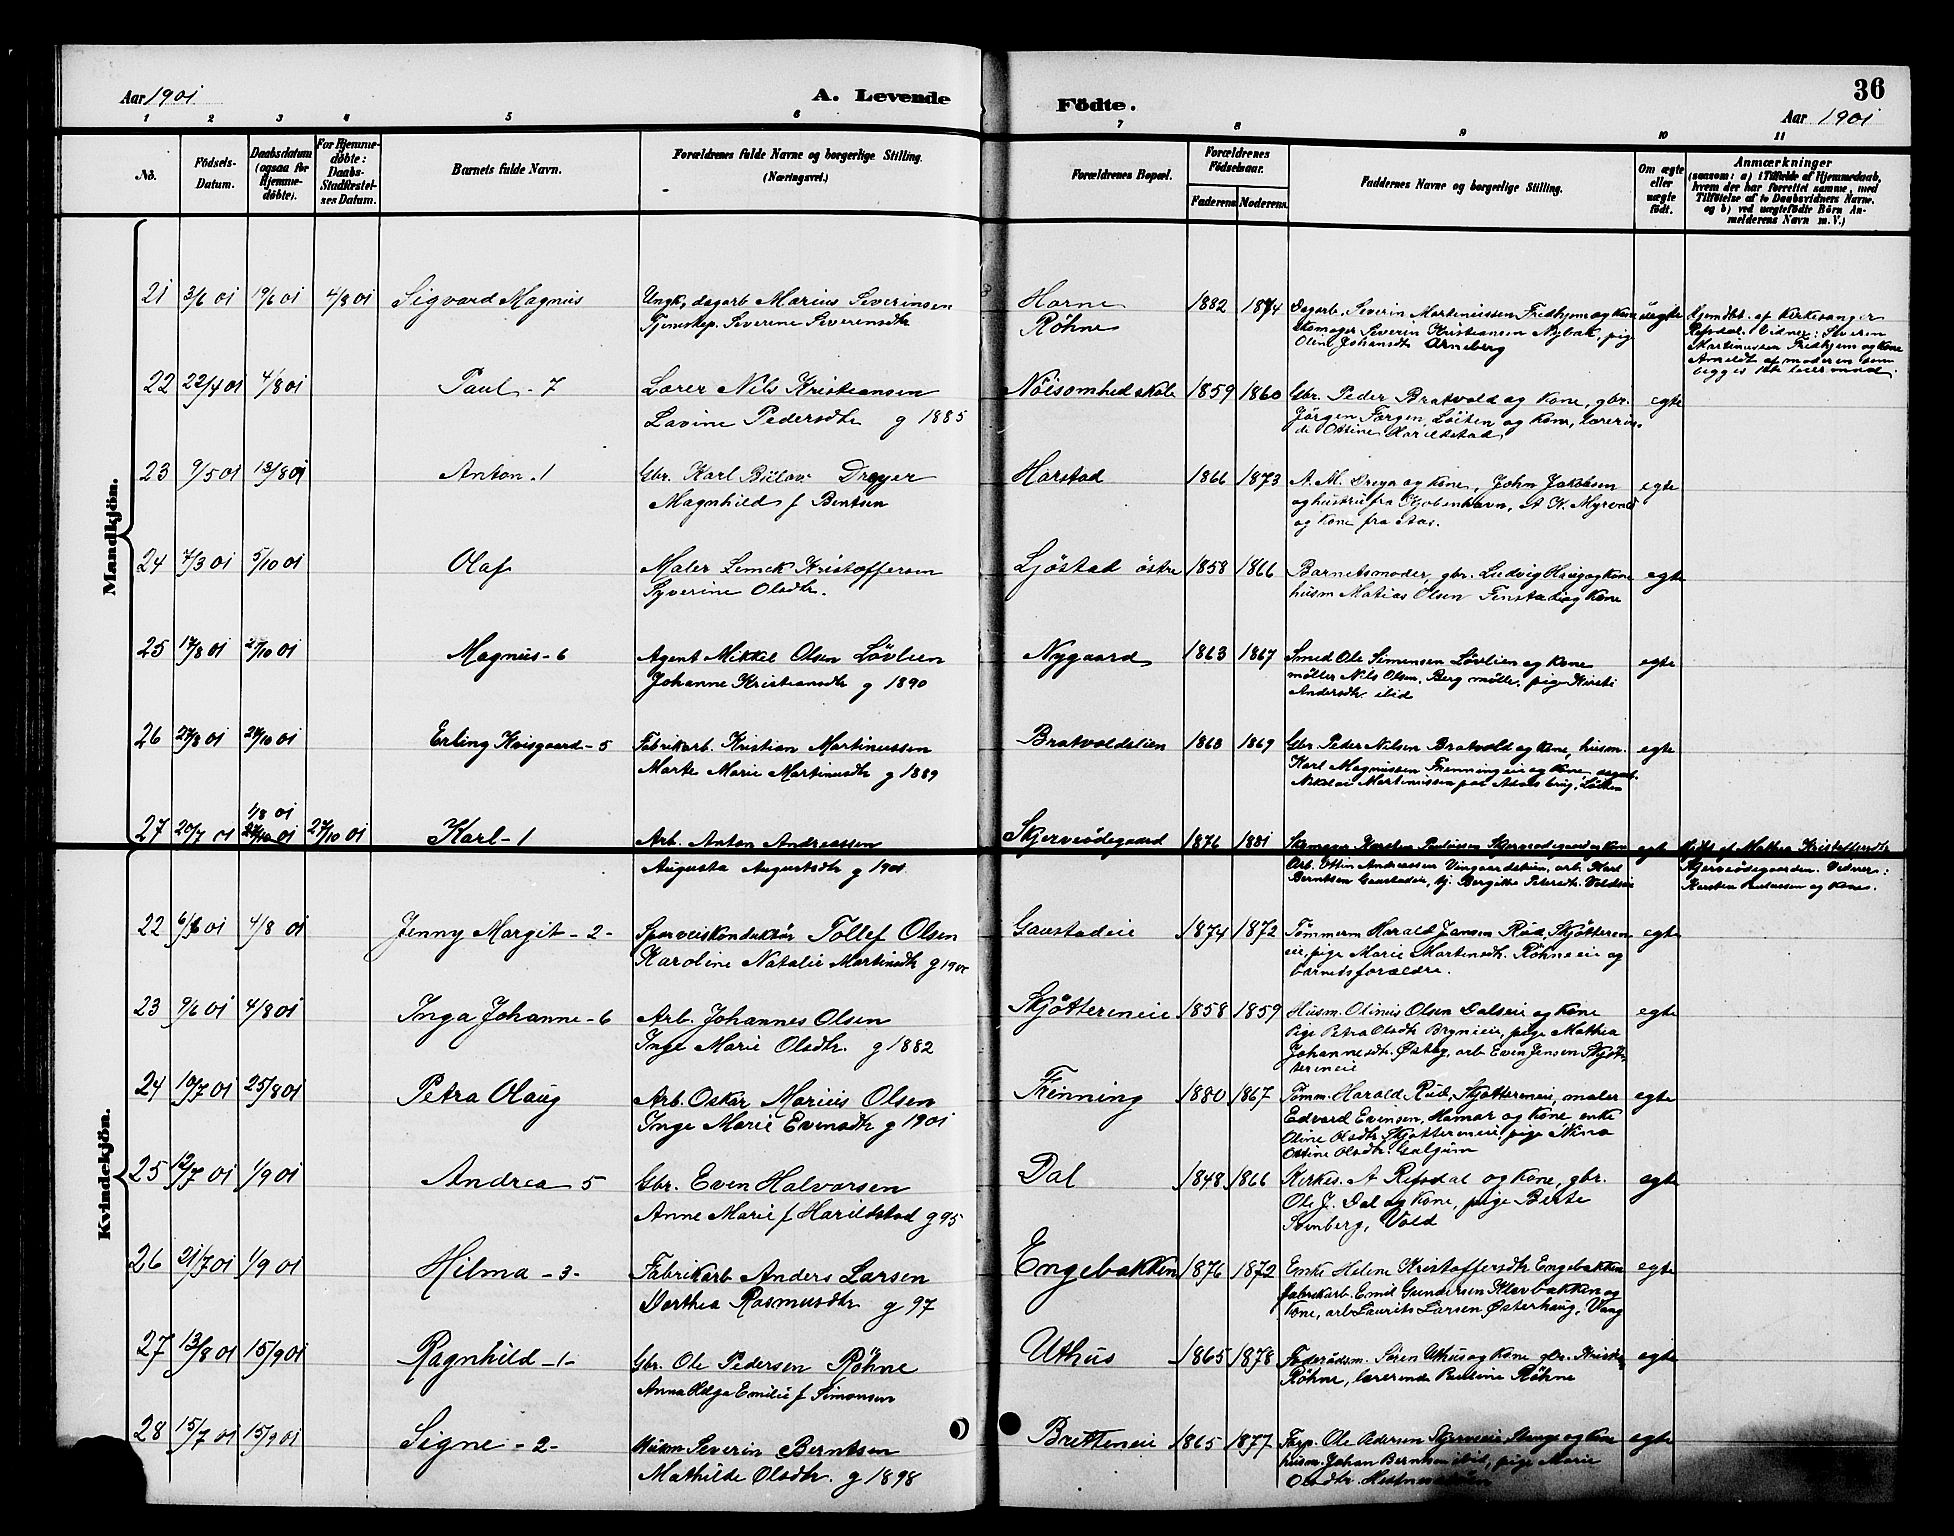 Aar 1901
A. Levende
Födte.
36
Aar 1901
1 2 3 4 5 6 7 8 9 10 11
No.
Födsels-
Datum.
Daabsdatum
(ogsaa for
Hjemme-
døbte).
For Hjemme-
døbte:
Daabs-
Stadfæstel-
ses Datum.
Barnets fulde Navn.
Forældrenes fulde Navne og borgerlige Stilling.
(Næringsvei.)
Forældrenes Bopæl.
Forældrenes
Födselsaar.
Faderens
Moderens
Faddernes Navne og borgerlige Stilling.
Om ægte
eller
uægte
født.
Anmærkninger
(saasom: a) i Tilfælde af Hjemmedaab,
hvem der har forrettet samme, med
Tilføielse af to Daabsvidners Navne,
og b) ved uægtefødte Börn An-
melderens Navn m. V.)
Mandkjön.
21 3/6 01 19/6 01 4/8 01 Sigvard Magnus
Ungk, dagarb Marius Severinsen
Tjenestep. Severine Severensdtr
Horne
Röhne
1882 1874
Dagarb. Severin Martinussen Fredhjem og kone
Severin Kristiansen Nybak, pige
Oline Johansdtr Arneberg
uægte
Hjemdbt. af Kirkesanger
Refsdal. Vidner: Severin
Martinussen Fredhjem og kone
Anmeldt af moderen som
22 22/4 01 4/8 01 Paul - 7
Lærer Nils Kristiansen
Lavine Pedersdtr g 1885
Nöisomhed skole 1859 1860
Gbr. Peder Bratvold og kone, gbr.
Jörgen Fargen, Löiten og kone, lærerin-
de Ottine Harildstad
egte
23 9/5 01 13/8 01 Anton - 1
Gbr. Karl Bülow Dreyer
Magnhild f Bentsen
Harstad 1866 1873
A. M. Dreyer og kone, John Jakobsen
og hustru fra Kjobenhavn, A K. Myrvold
og kone fra Aas.
egte
24 7/3 01 5/10 01 Olaf
Maler Lenck Kristoffersen
Syverine Olsdtr.
Ljöstad östre 1858 1866
Barnetsmoder, gbr. Ludvig Haug og kone
husm Matias Olsen Finstad og kone
egte
25 17/8 01 27/10 01 Magnus - 6
Agent Mikkel Olsen Lövlien
Johanne Kristiansdtr g 1890
Nygaard 1863 1867
Smed Ole Simensen Lövlien og kone
möller Nils Olsen, Berg mølle, pige Kirsti
Andersdtr ibid
egte
26 27/8 01 27/10 01 Erling Kvisgaard - 5
Fabrikarb. Kristian Martinussen
Marte Marie Martinusdtr g 1889
Bratvoldslien 1863 1869
Gbr. Peder Nilsen Bratvold og kone, husm.
Karl Magnussen Frenningeie og kone,
Nikolai Martinussen paa Aadals brug, Löiten
egte
27 20/7 01 1/8 01 27/10 01 27/10 01 Karl - 1
Arb. Anton Andreassen
Augusta Augustsdtr g 1901
Skjerveödegaard 1876 1881
Karsten Paulsen Skjerveödegaard og kone
Arb. Ottin Andreassen Vingaardslien, arb. Karl
Berntsen Gaustadeie, tj. Bergitte Petersdtr Voldseie
egte
af Mathea Kristoffersdtr
Skjerveödegaarden. Vidner:
Karsten Paulsen og kone.
Kvindekjön.
22 6/6 01 4/8 01 Jenny Margit - 2 -
Sporveiskonduktör Tollef Olsen
Karoline Natalie Martinsdtr g 1900
Gaustadeie 1874 1872
Tömmerm Harald Jansen Rud, Skjötteren
eie, pige Marie Martensdtr. Röhneeie og
barnedsforældre.
egte
23 9/6 01 4/8 01 Inga Johanne - 6
Arb. Johannes Olsen
Inge Marie Olsdtr. g 1882
Skjöttereneie 1858 1859
Husm. Olinus Olsen Dalseie og kone
Pige Petra Olsdtr Brynieie, pige Mathea
Johannesdtr. Østby, arb Even Jensen Skjöt-
tereneie
egte
24 10/7 01 25/8 01 Petra Olaug
Arb. Oskar Marius Olsen
Inge Marie Evensdtr g 1901
Frenning 1880 1867
Tömm. Harald Rud, Skjöttereneie, maler
Edvard Evensen, Hamar og kone enke
Oline Olsdtr Skjöttereneie, pige Nina
Ottine Olsdtr. Galgum
egte
25 12/7 01 1/9 01 Andrea 5
Gbr. Even Halvorsen
Anne Marie f Harildstad g 95
Dal 1848 1866
Kirkes. A Refsdal og kone, gbr.
Ole J. Dal og kone, pige Berte
Svenberg, Vold
egte
26 21/7 01 1/9 01 Hilma - 3 -
Fabrikarb Anders Larsen
Dorthea Rasmusdtr g 97
Engebakken 1876 1872
Enke Helene Kristoffersdtr Engebakken
fabrikarb. Emil Gundersen Klevbakken og
kone, arb Laurits Larsen Østerhaug, Vang
egte
27 13/8 01 15/9 01 Ragnhild - 1 -
Gbr. Ole Pedersen Röhne
Anna Helga Emilie f Simonsen
Uthus 1865 1878
Foderaadsm. Sören Uthus og kone gbr.
Röhne, lærerinde Pauline Röhne
egte
28 15/7 01 15/9 01 Signe - 2 -
Husm Severin Berntsen
Mathilde Olsdtr. g 1898
Bretteneie 1865 1877
Forp. Ole Andersen Skjerveeie, Stange og kone
husm. Johan Berntsen ibid, pige Marie
Olsdtr.
egte